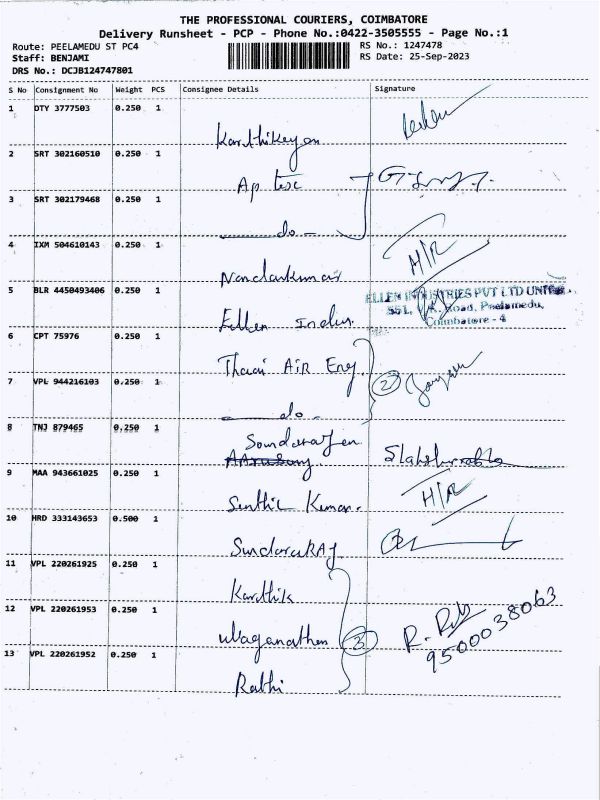 THE PROFESSIONAL COURIERS, COIMBATORE
Delivery Runsheet - PCP - Phone No.:0422-3505555 - Page No.:1
Route: PEELAMEDU ST PC4
RS No.: 1247478
Staff: BENJAMI
RS Date: 25-Sep-2023
DRS No.: DCJB124747801
S No Consignment No Weight PCS Consignee Details Signature
1 DTY 3777503 0.250 1
Karthikeyan
2 SRT 302160510 0.250 1
Ap tec
3 SRT 302179468 0.250 1
do
4 IXM 504610143 0.250 1
H/R
Nandakumar
5 BLR 4450493406 0.250 1
ELLEN INDUSTRIES PVT LTD UNIT
551, Road, Peelamedu,
Coimbatore - 4
Ellen Indus.
6 CPT 75976 0.250 1
Thaai AiR Eng.
7 VPL 944216103 0.250 1
2
do
8 TNJ 879465 0.250 1
Soundarajen
9 MAA 943661025 0.250 1
H/R
Senthil Kumar.
10 HRD 333143653 0.500 1
SundaraRAj
11 VPL 220261925 0.250 1
Karthik
12 VPL 220261953 0.250 1
3
R.
9500038063
13 VPL 220261952 0.250 1
Rathi